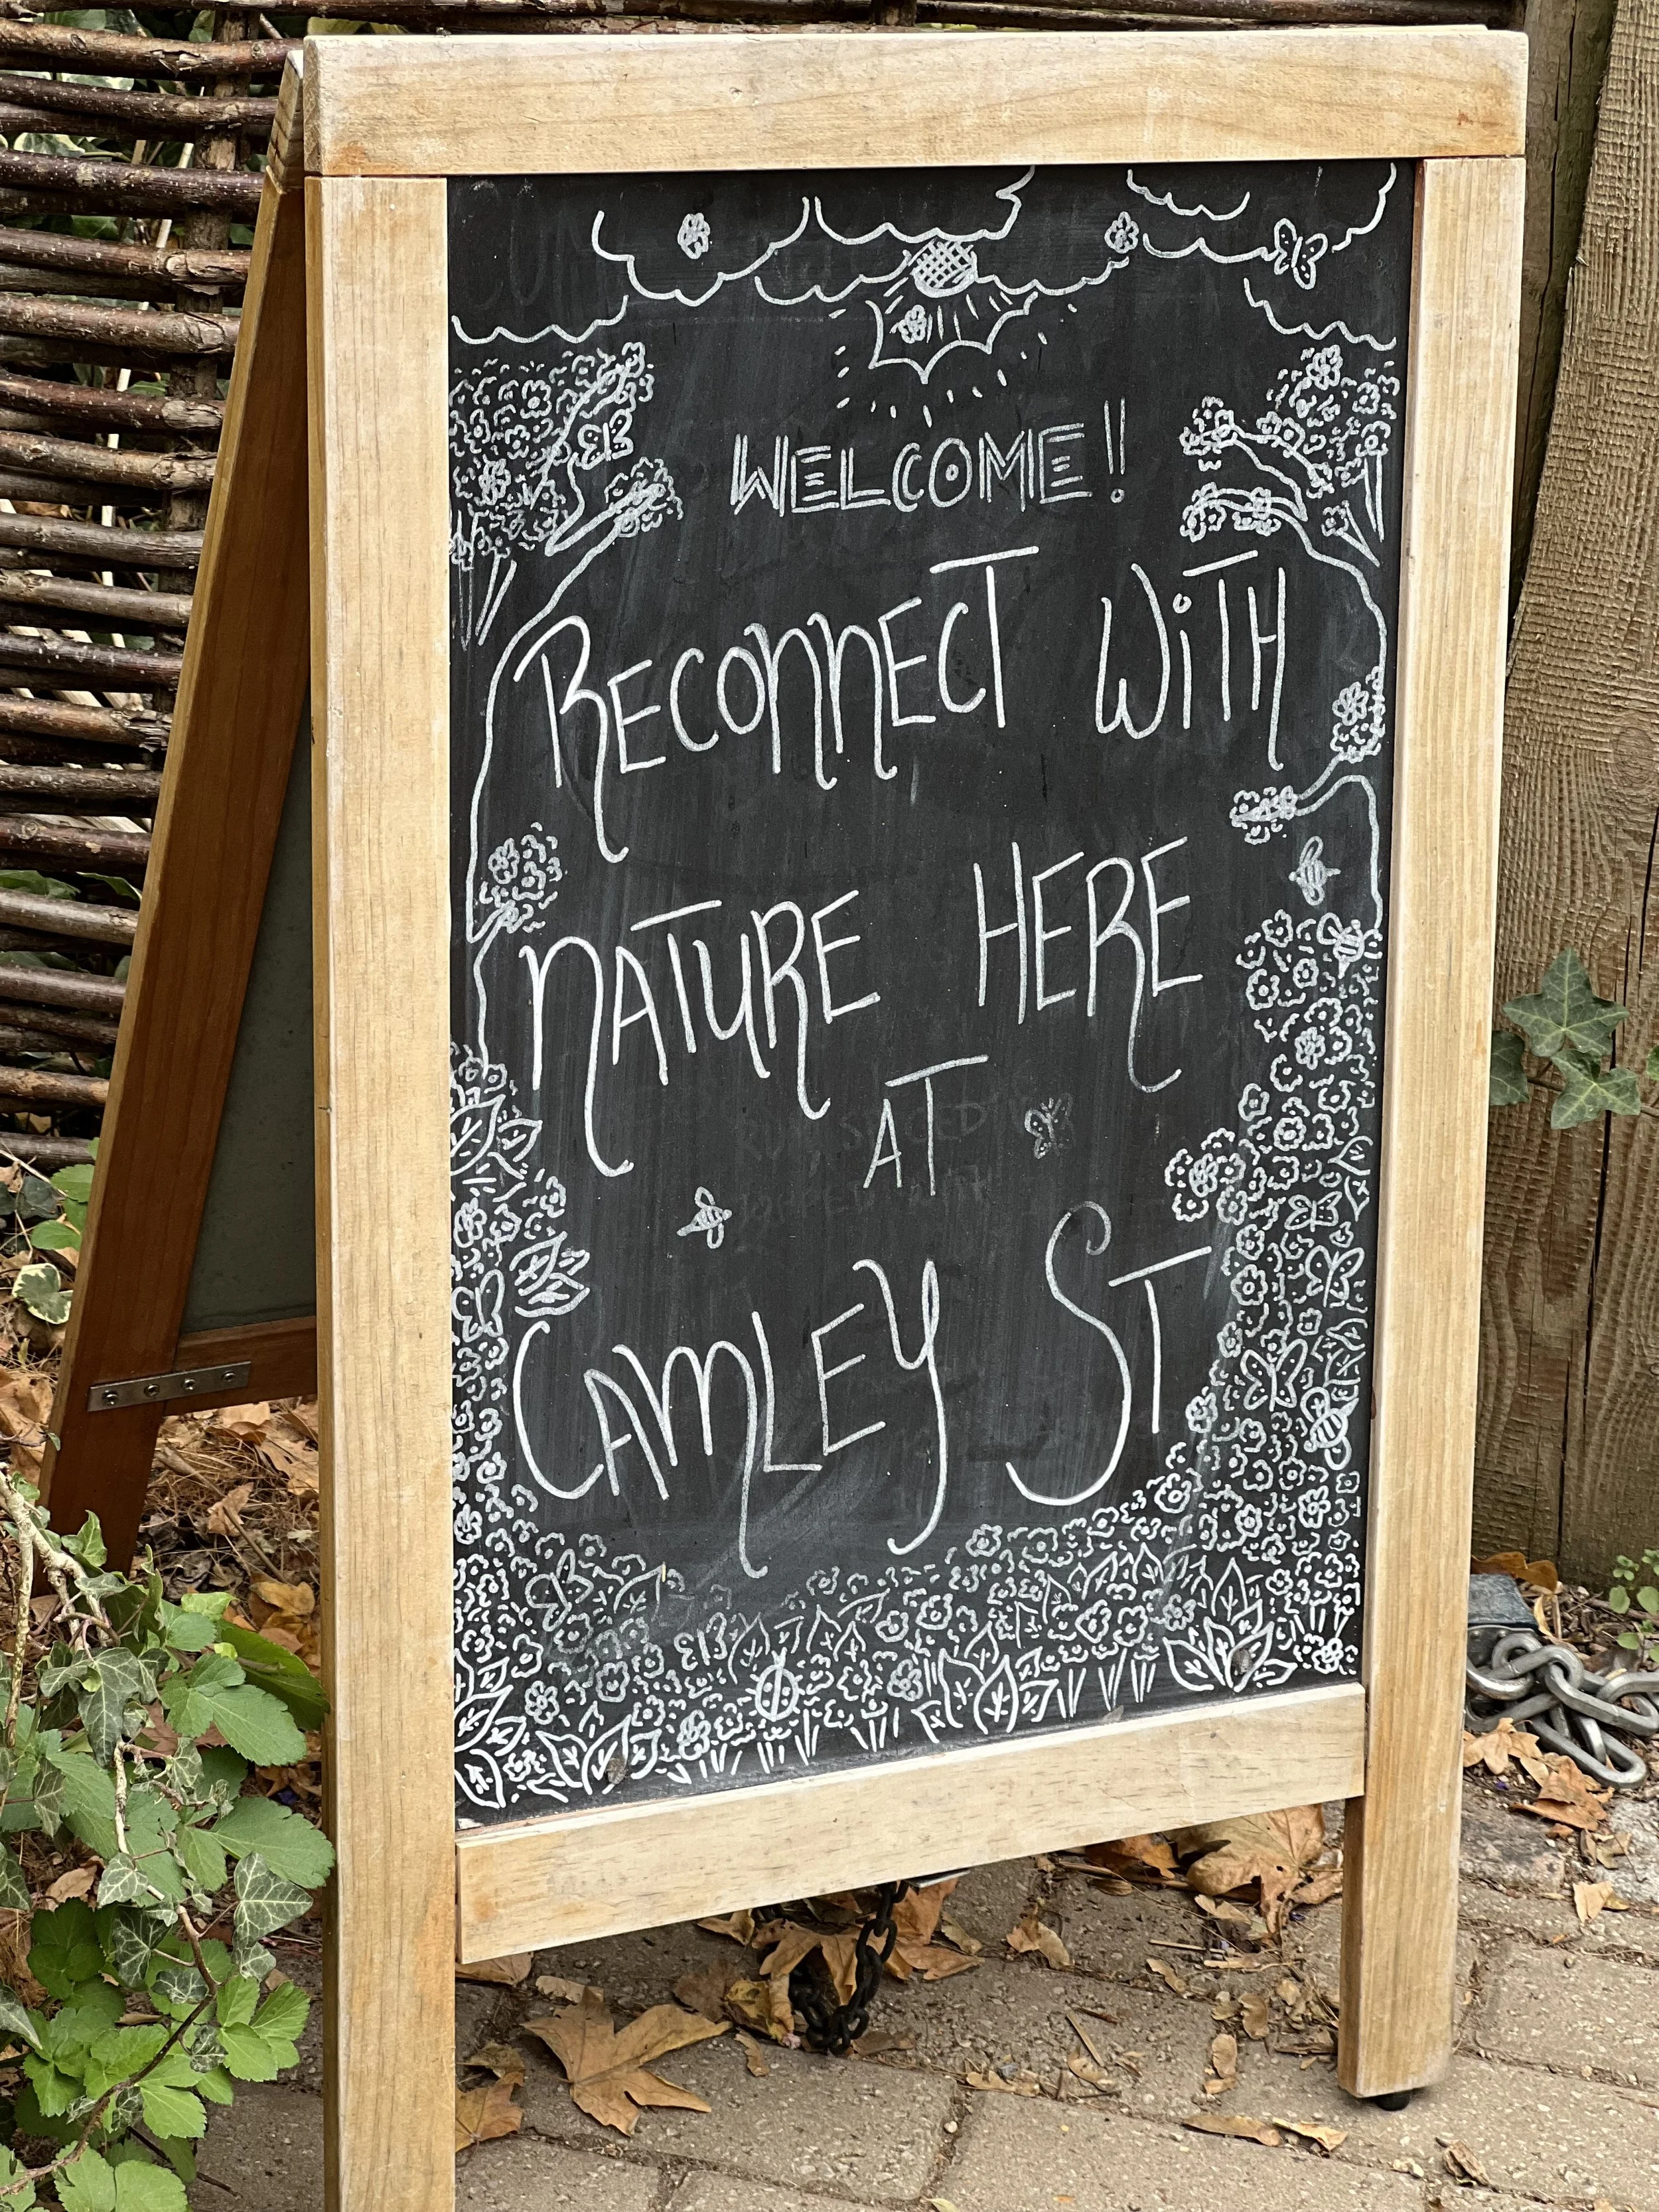 WELCOME!
RECONNECT WiTH
NATURE HERE
AT
CAMLEY ST